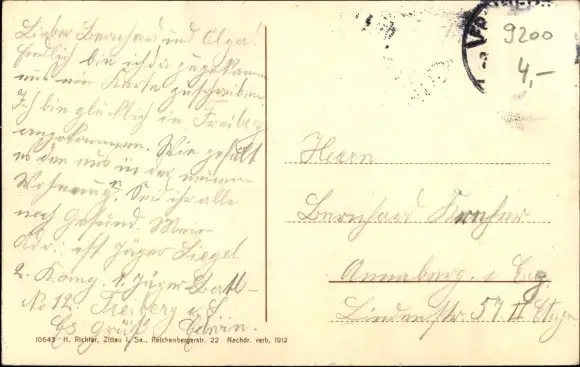 Lieber Bernhard und Olga!
Endlich bin ich da zugekommen
um eine Karte zuschreiben
Ich bin glücklich in Freiberg
angekommen. Wie gefält
es den nur in der neuen
Wohnung? Seid ihr alle
noch Gesund. Meine
Adr: ist Jäger Siegel
2. Komp. 1. Jäger-Batl-
No 12. Freiberg i. S.
Es grüßt Erwin.
FREIBERG
9200
4,–
Herrn
Bernhard
Annaberg i. Erzg.
Lindenstr. 54 II Etage
10643 H. Richter, Zittau i. Sa., Reichenbergerstr. 22 Nachdr. verb. 1912